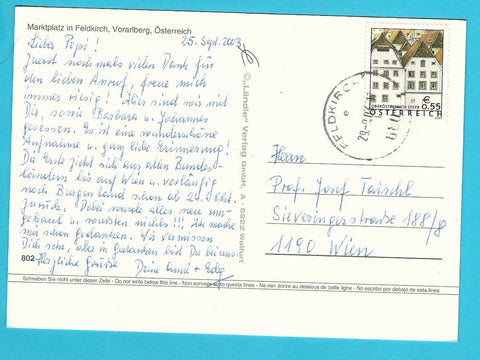 Marktplatz in Feldkirch, Vorarlberg, Österreich
25. Sept. 2003
Lieber Pepi!
Zuerst nochmals vielen Dank für
den lieben Anruf, freue mich
immer riesig! Hier sind wir mit
Dir, sowie Barbara u. Johannes
gesessen. Es ist eine wunderschöne
Aufnahme u. ganz liebe Erinnerung!
Die Erste zieht sich aus allen Bundes-
ländern bis auf Wien u. vorläufig
noch Burgenland schon ab 24. Okt.
zurück. Dabei wurde alles neu um-
gebaut u. wussten nichts!!! Ich mache
mir schon Gedanken. Wir vermissen
Dich sehr, aber in Gedanken bist Du bei uns.
Herzliche Grüße Deine Anni +
802
© „Ländle" Verlag GmbH, A - 6922 Wolfurt
FELDKIRCH
€
0.55
ÖSTERREICH
Herrn
Prof. Josef Taischl
Sieveringerstraße 188/8
1190 Wien
Schreiben Sie nicht unter dieser Zeile - Do not write below this line - Non scrivere sotto questa linea - Ne rien écrire au dessous de cette ligne - No escribir por debajo de esta linea